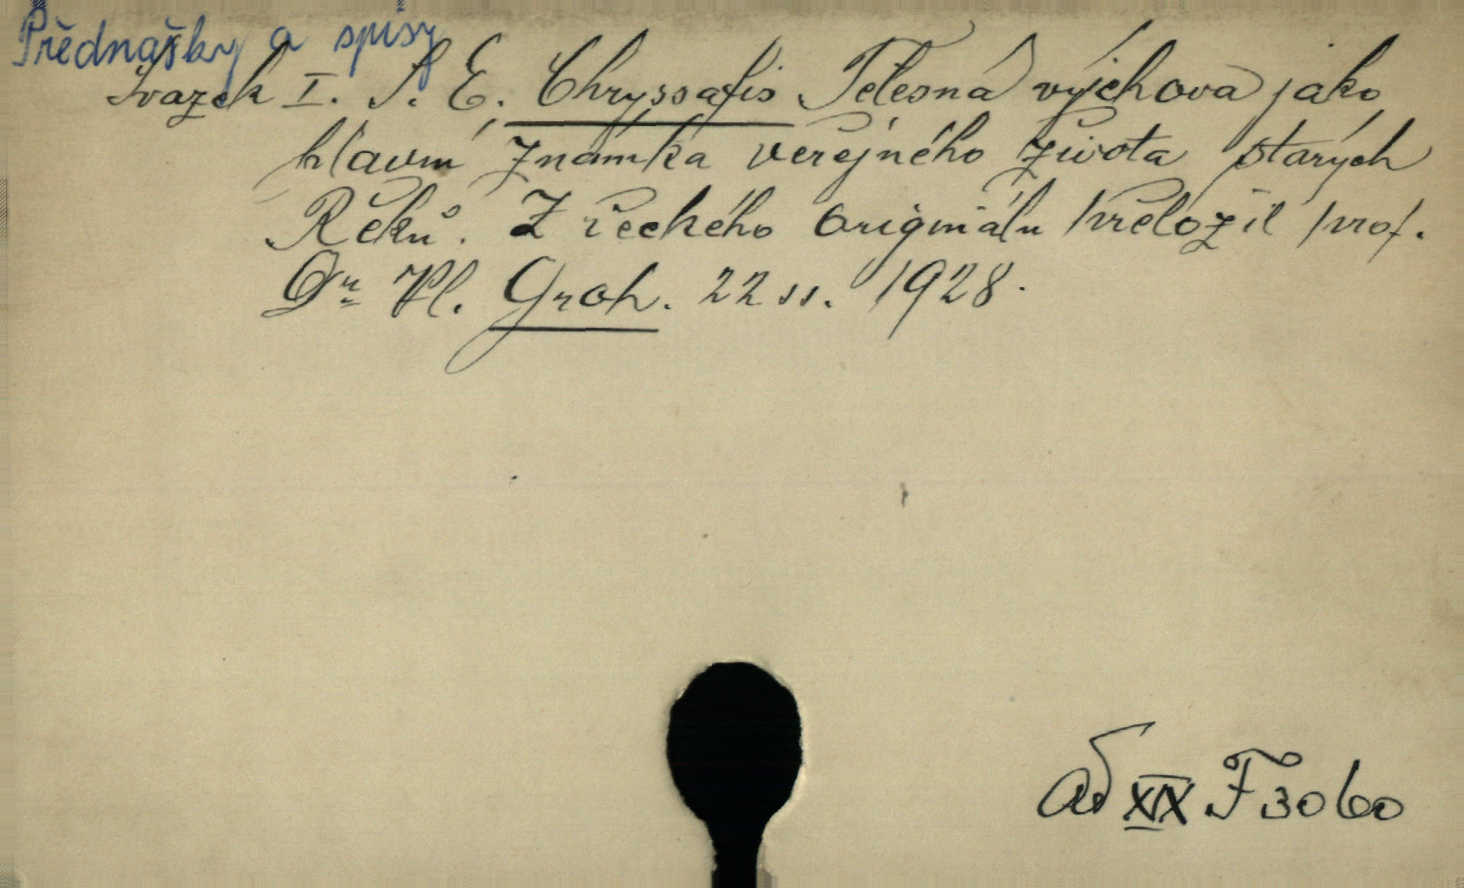 Přednášky a spisy
Svazek I. S. E. Chryssafis Tělesná výchova jako
hlavní známka veřejného života starých
Řeků. Z řeckého originálu přeložil prof.
Dr Vl. Groh. 22 ss. 1928.
ad XIX F 3060